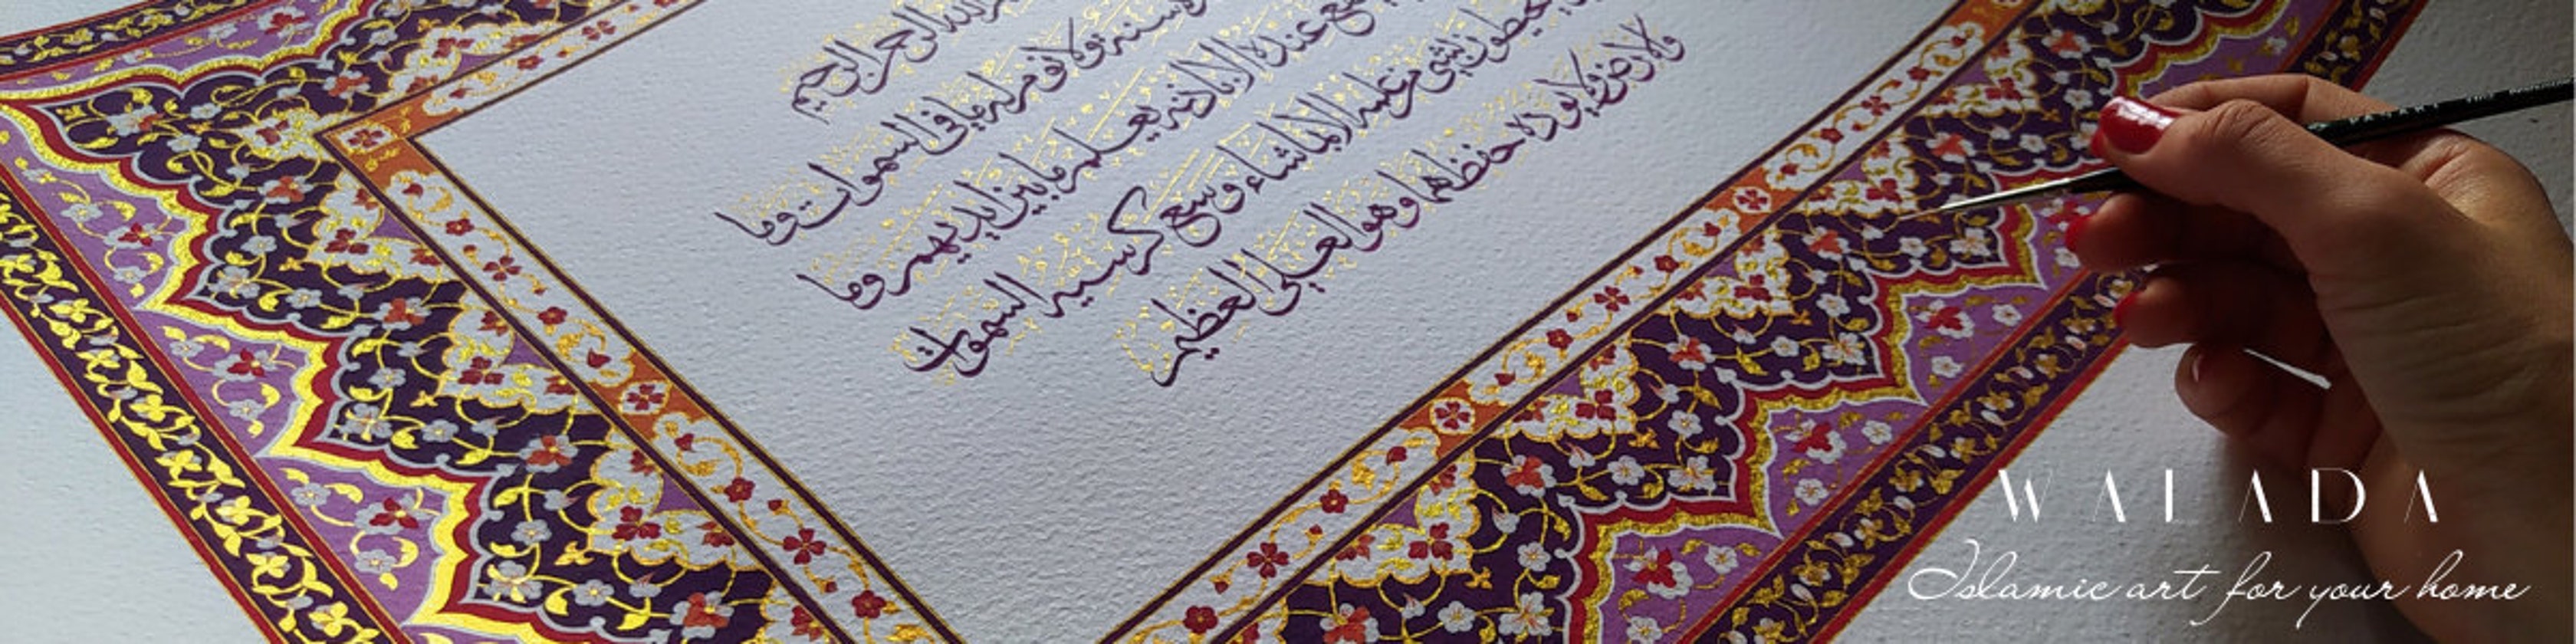 الرحمن الرحيم
سنة ولا نوم له ما في السموات وما
يشفع عنده إلا بإذنه يعلم ما بين أيديهم وما
يحيطون بشئ من علمه إلا بما شاء وسع كرسيه السموات
ولارض ولا يوده حفظهما وهو العلي العظيم
WALADA
Islamic art for your home